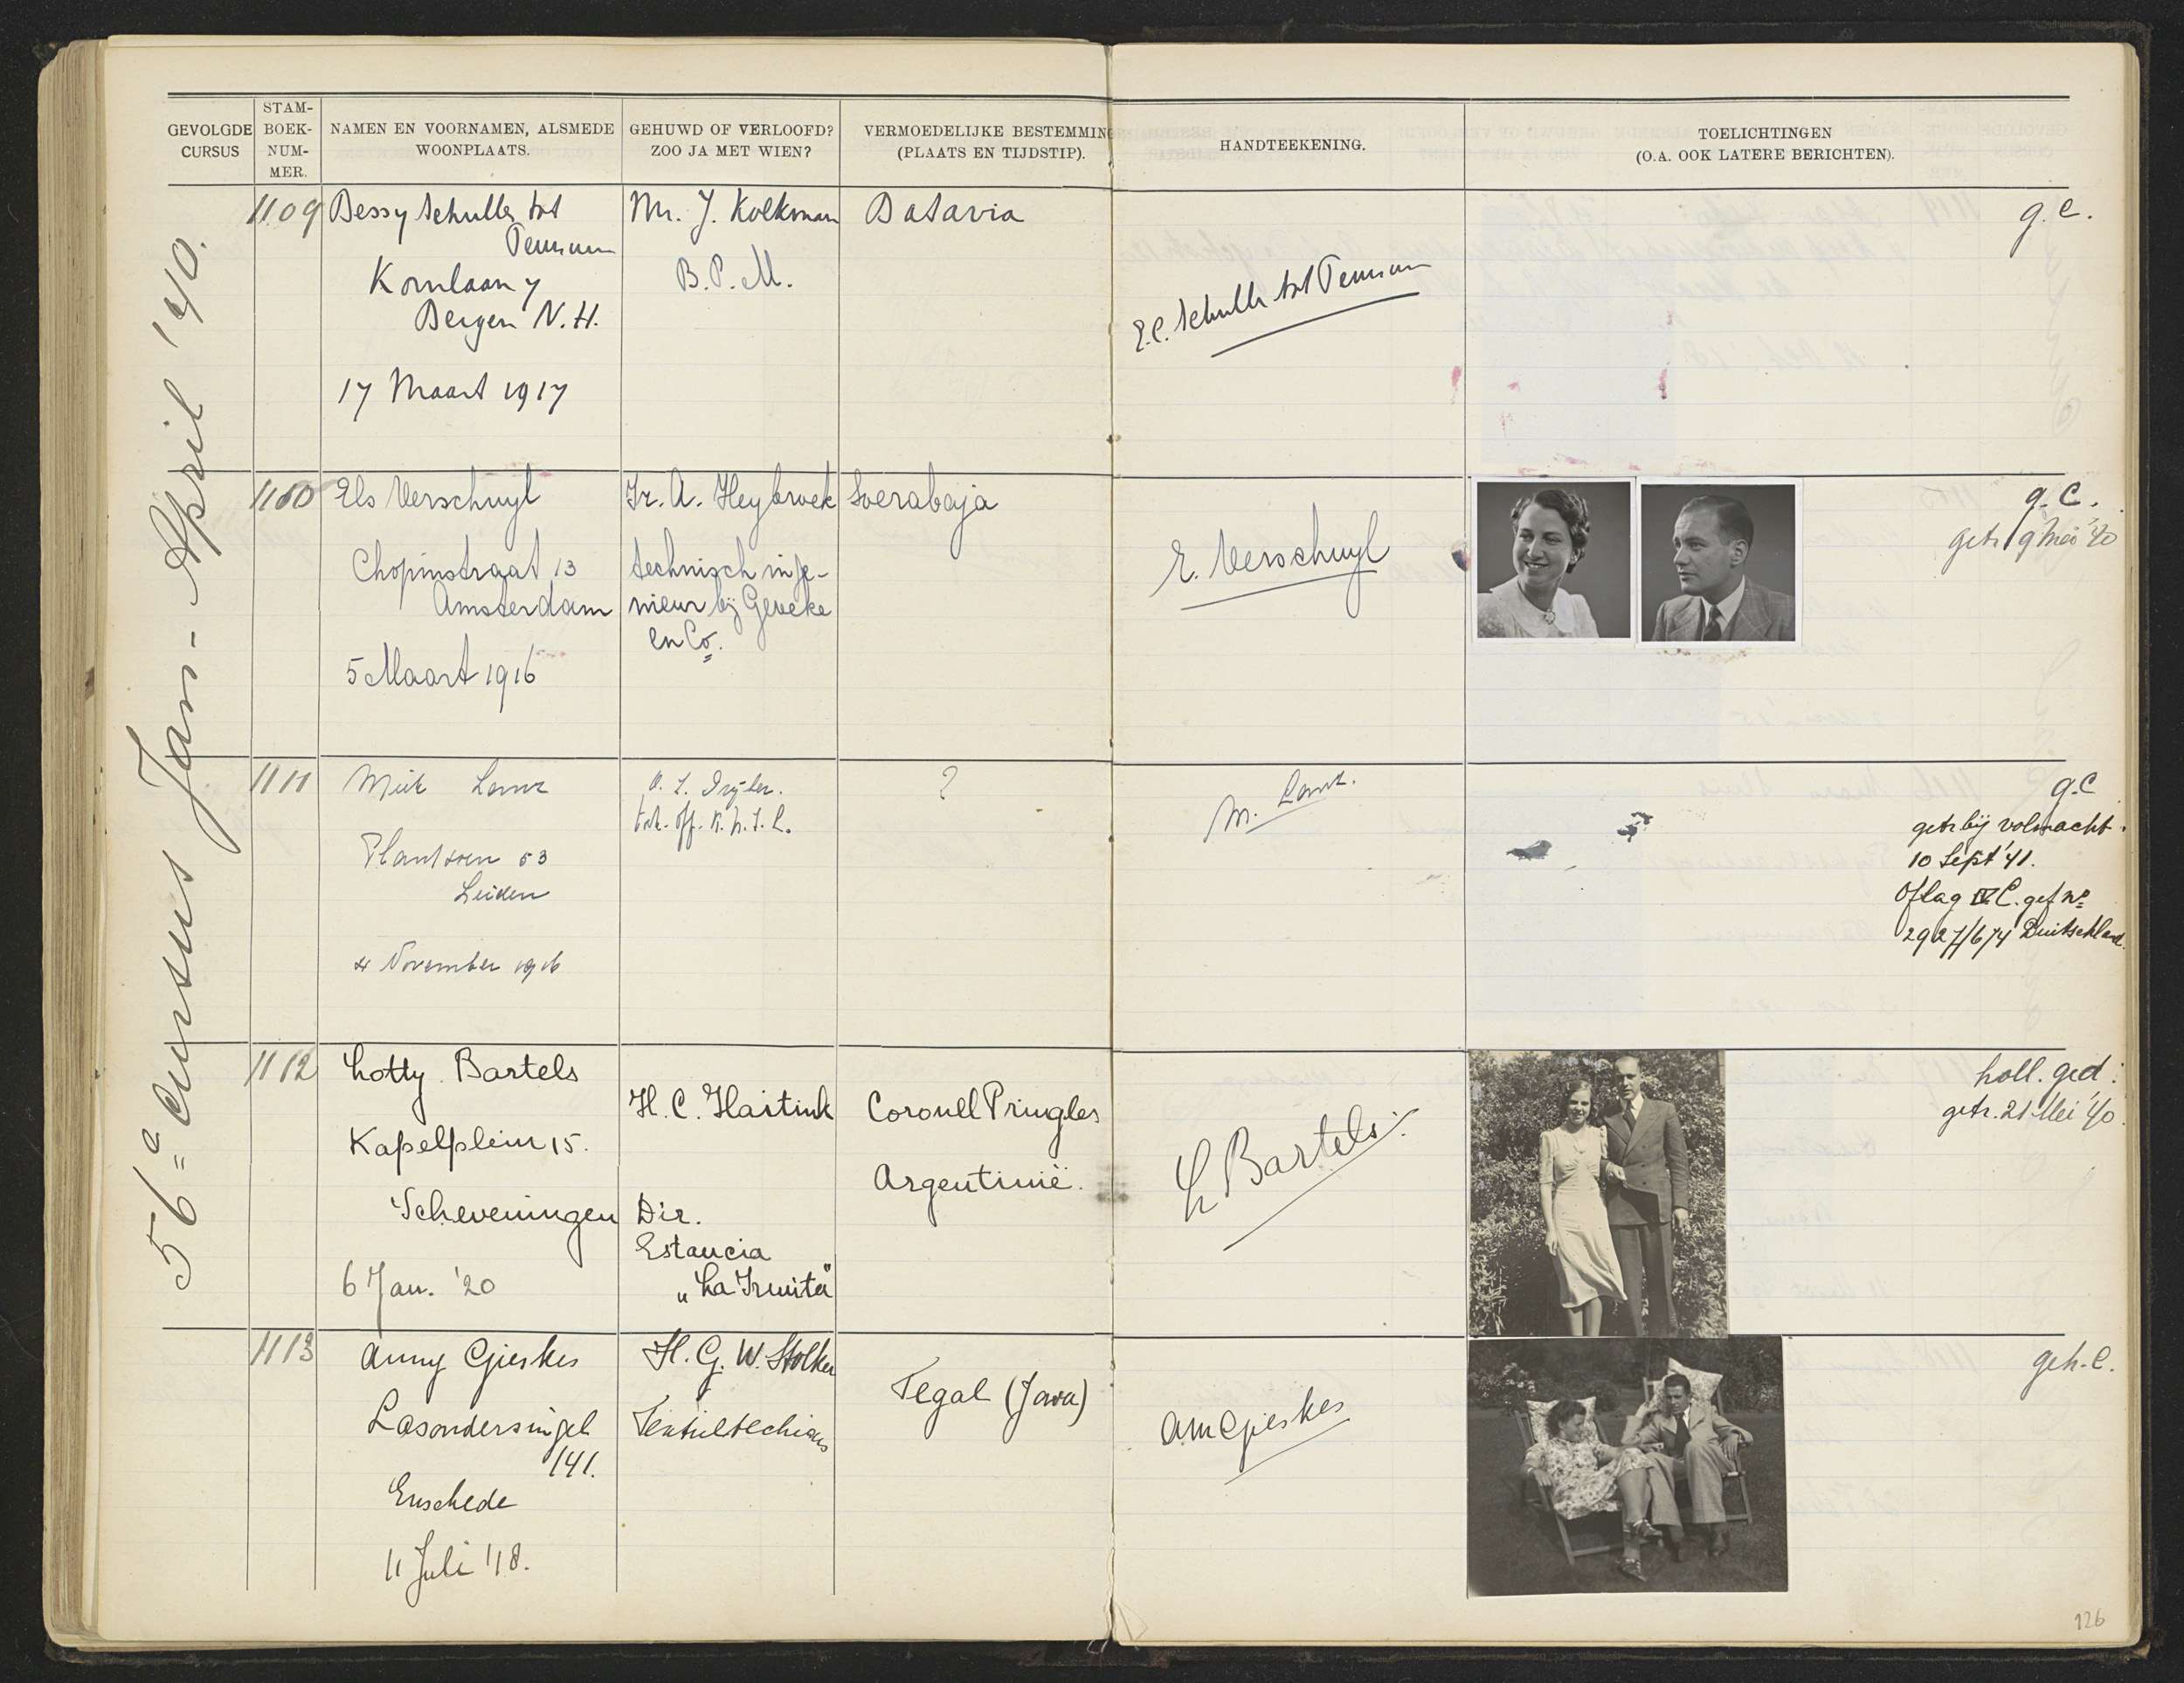 GEVOLGDE
CURSUS
STAM-
BOEK-
NUM-
MER.
NAMEN EN VOORNAMEN, ALSMEDE
WOONPLAATS.
GEHUWD OF VERLOOFD?
ZOO JA MET WIEN?
VERMOEDELIJKE BESTEMMING
(PLAATS EN TIJDSTIP).
HANDTEEKENING.
TOELICHTINGEN
(O.A. OOK LATERE BERICHTEN).
56e Cursus Jan - April '40.
1109
Bessy Schuller tot
Peursum
Kornlaan 7
Bergen N.H.
17 Maart 1917
Mr. J. Kolkman
B.P.M.
Batavia
E.C. Schuller tot Peursum
g.c.
1110
Els Verschuyl
Chopinstraat 13
Amsterdam
5 Maart 1916
Ir. A. Heybroek
technisch inge-
nieur bij Geveke
en Co.
Soerabaja
E. Verschuyl
g.C.
getr. 9 Mei '40
1111
Miek
Plantsoen 53
Leiden
4 November 1916
off. K.N.I.L.
?
M.
g.C
getr bij volmacht.
10 Sept '41.
Oflag IV C. gef No
Duitschland.
1112
Lotty Bartels
Kapelplein 15.
Scheveningen
6 Jan. '20
H.C. Haitink
Dir.
Estancia
„La Trinita"
Coronel Pringles
Argentinië.
L Bartels.
holl. ged.
getr. 21 Mei '40.
1113
Anny Gjeskes
Lasondersingel
141.
Enschede
11 Juli '18.
H.G.W. Stolker
Textieltechnicus
Tegal (Java)
AM Gjeskes
geh. C.
126